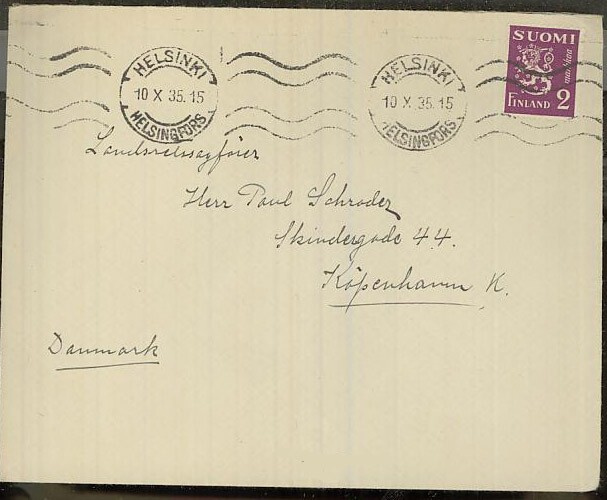 HELSINKI
10 X 35.15
HELSINGFORS
HELSINKI
10 X 35.15
HELSINGFORS
SUOMI
markkaa
FINLAND 2
Landsretssagfører
Herr Poul Schrøder
Skindergade 44.
Köpenhamn K.
Danmark